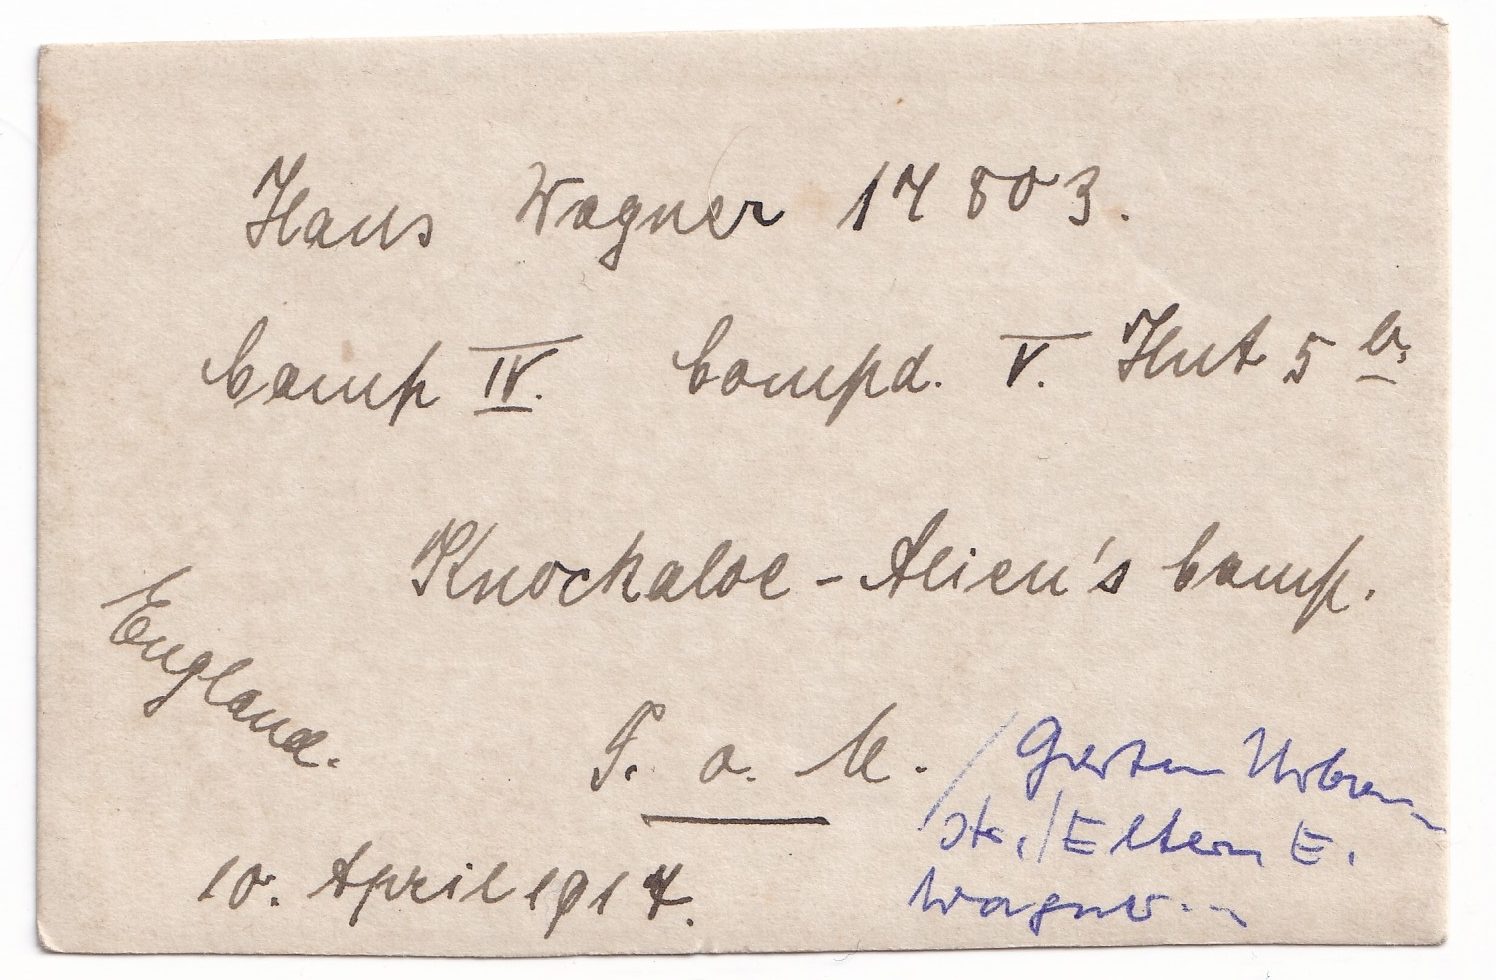 Hans Wagner 17803.
Camp IV. Compd. V. Hut 5 b.
Knockaloe - Alien's Camp.
England.
I. o. M.
10. April 1917.
/ Garten Urban-
str. / Eltern E.
Wagner